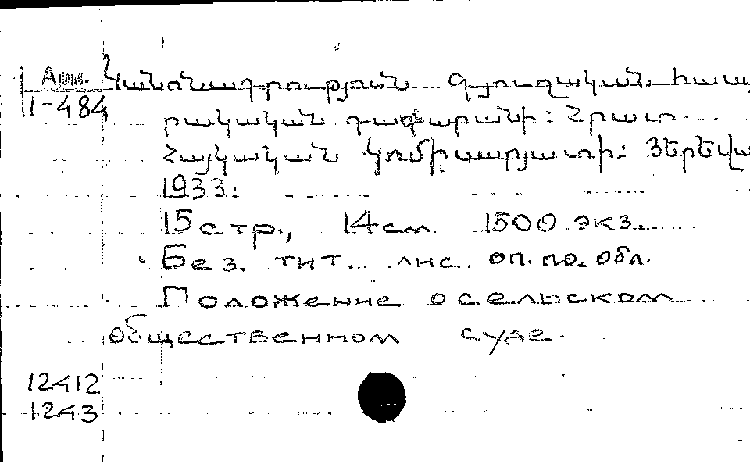 Арм. Կանոնադրություն գյուղական հասա
1-484
րակական դատարանի: Հրատ.
Հայկական կոմիսարյատի: Յերեվա
1933:
15 стр., 14 см. 1500 экз.
Без. тит. лис. оп. по. обл.
Положение о сельском
общественном суде
12412
1243